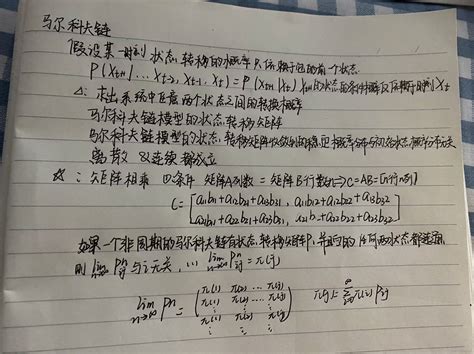 马尔科夫链
假设某一时刻状态转移的概率只依赖于它的前一个状态
P(Xt+1|...Xt-2, Xt-1, Xt) = P(Xt+1|Xt) Xt+1的状态的条件概率仅依赖于时刻Xt
△: 求出系统中任意两个状态之间的转换概率
马尔科夫链模型的状态转移矩阵
马尔科夫链模型的状态转移矩阵收敛到的稳定概率分布与初态状态概率分布无关
离散 & 连续都成立
☆: 矩阵相乘 ①条件 矩阵A列数 = 矩阵B行数 C=AB=
C = [a11b11+a12b21+a13b31, a11b12+a12b22+a13b32
a21b11+a22b21+a23b31, a21b12+a22b22+a23b32]
如果一个非周期的马尔科夫链有状态转移矩阵P, 并且它的任何两个状态都连通
则 lim n→∞ Pij^n 与i无关, ∴ lim n→∞ Pij^n = π(j)
lim n→∞ P^n = (π(1) π(2) ... π(j) ...
π(1) π(2) ... π(j) ...
π(1) π(2) ... π(j) ...) π(j) = ∞∑i=0 π(i)Pij